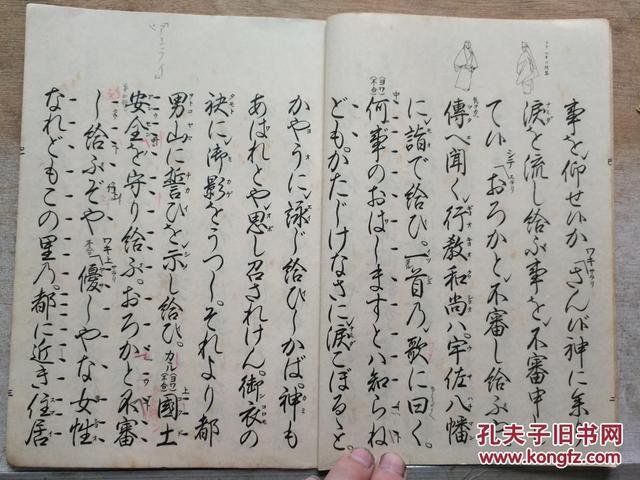 事を仰せ候か「さん候神に参り
涙を流し給ふ事を不審申し
て候「おろかと不審し給ふや
傳へ聞く行教和尚ハ。宇佐八幡
に詣で給ひ。一首乃歌に曰く。
何事のおはしますとハ知らね
ども。かたじけなさに涙こぼるゝと。
かやうに詠じ給ひしかば。神も
あはれとや思し召されけん。御衣の
袂に御影をうつし。それより都
男山に誓ひを示し給ひ。國土
安全を守り給ふ。おろかと不審
し給ふぞや「優しやな女性
なれどもこの里乃。都に近き住居
孔夫子旧书网
KONGFZ.COM